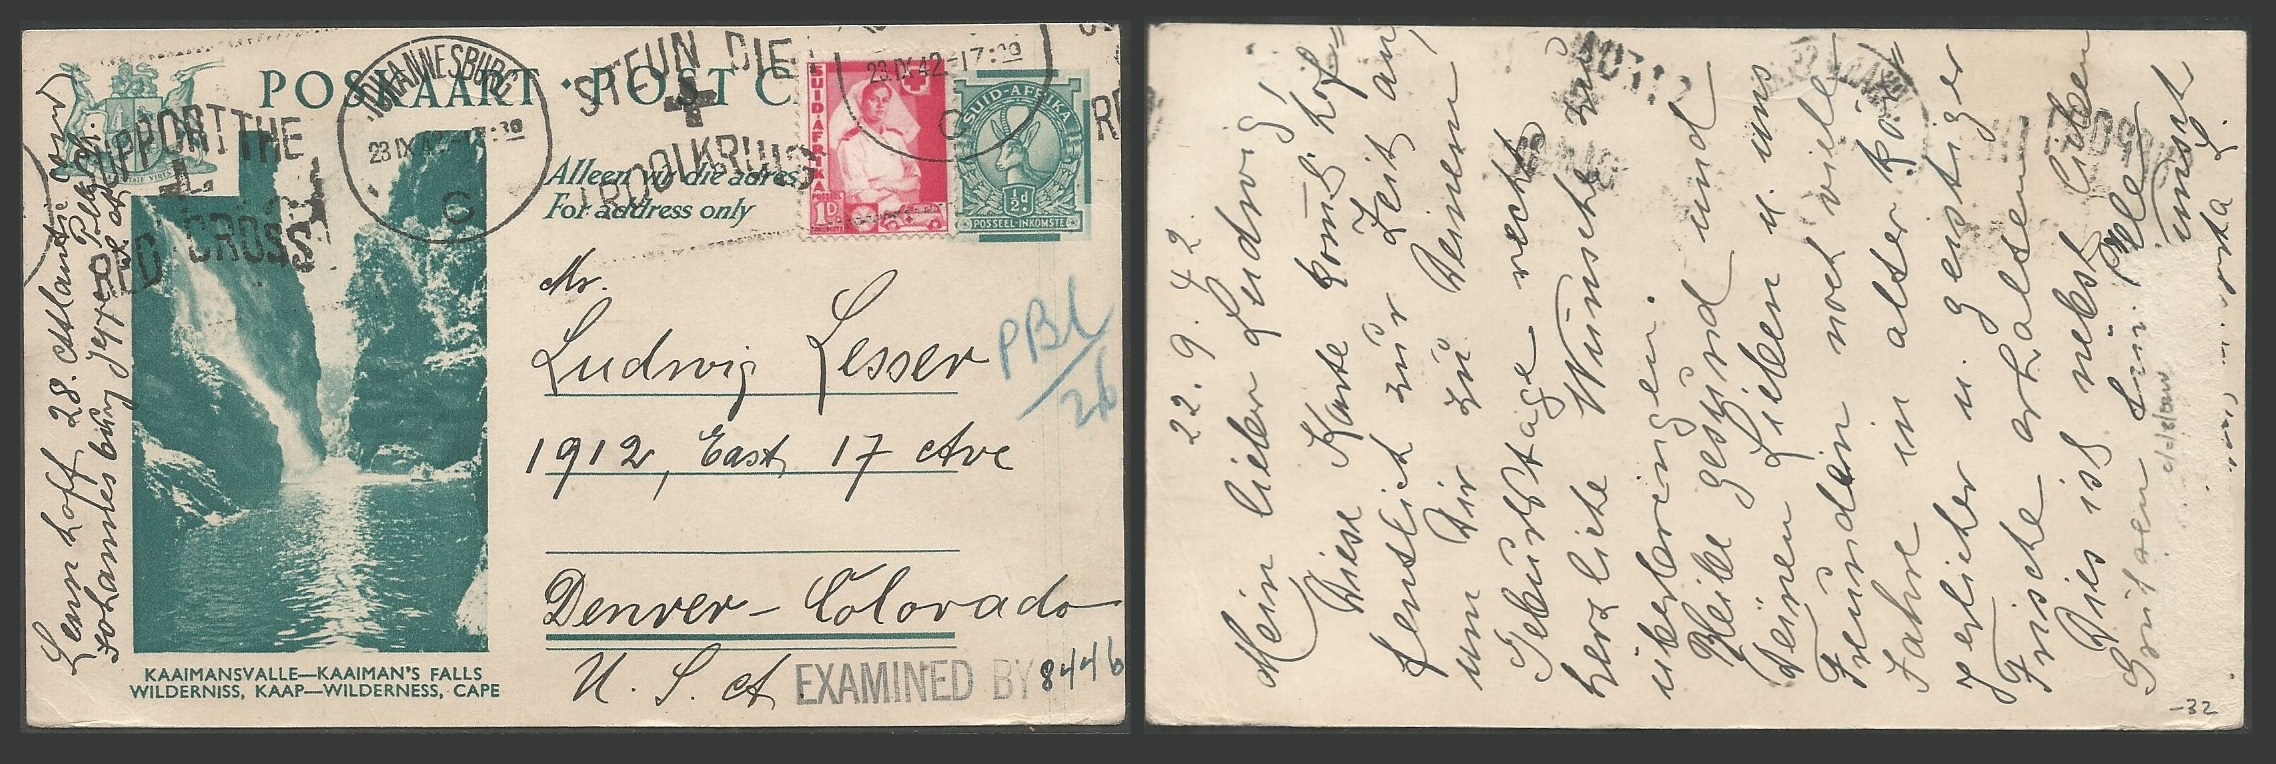 POSKAART · POSTC
SUPPORT THE
RED CROSS
JOHANNESBURG
23 IX 42 - 17:30
C
STEUN DIE
ROOI KRUIS
SUID-AFRIKA
1D.
23 IX 42 - 17:30
C
SUID-AFRIKA
½d
POSSEEL-INKOMSTE
Alleen vir die adres
For address only
28. Atlantic
Johannesburg Jeppe
Mr.
Ludwig Lesser
1912, East 17 Ave
Denver – Colorado
U. S. A
PBL
26
EXAMINED BY 8446
KAAIMANSVALLE—KAAIMAN'S FALLS
WILDERNISS, KAAP—WILDERNESS, CAPE
22. 9. 42.
Mein lieber Ludwig!
Diese Karte kommt hof=
fentlich zur Zeit an,
um Dir zu Deinem
Geburtstage recht
herzliche Wünsche zu
überbringen.
Bleibe gesund und
Deinen Lieben u. uns
Freunden noch viele
Jahre in alter kör=
perlicher u. geistiger
Frische erhalten.
Dies ist nebst lieben
Grüssen
-32